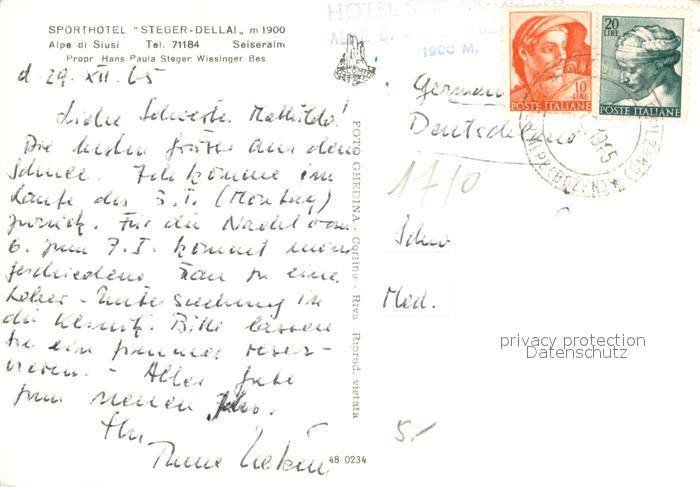 SPORTHOTEL "STEGER-DELLAI„ m 1900
Alpe di Siusi Tel. 71184 Seiseralm
Propr Hans Paula Steger Wiesinger Bes
HOTEL
1900 M.
10
LIRE
POSTE ITALIANE
20
LIRE
POSTE ITALIANE
d. 29. XII. 65
Liebe Schwester Mathilde!
Die besten Grüße aus dem
Schnee. Ich komme im
Laufe des 3. I. (Montag)
zurück. Für die Nacht vom
6. zum 7. I. kommt meine
geschiedene Frau zu einer
Leber-Untersuchung in
die Klinik. Bitte lassen
Sie ein Zimmer reser-
vieren. - Alles Gute
zum neuen Jahr.
Ihr
German
Deutschland
1710
Schw
Med.
5.-
FOTO GHEDINA - Cortina - Riva Riprod. vietata
48 0234
privacy protection
Datenschutz